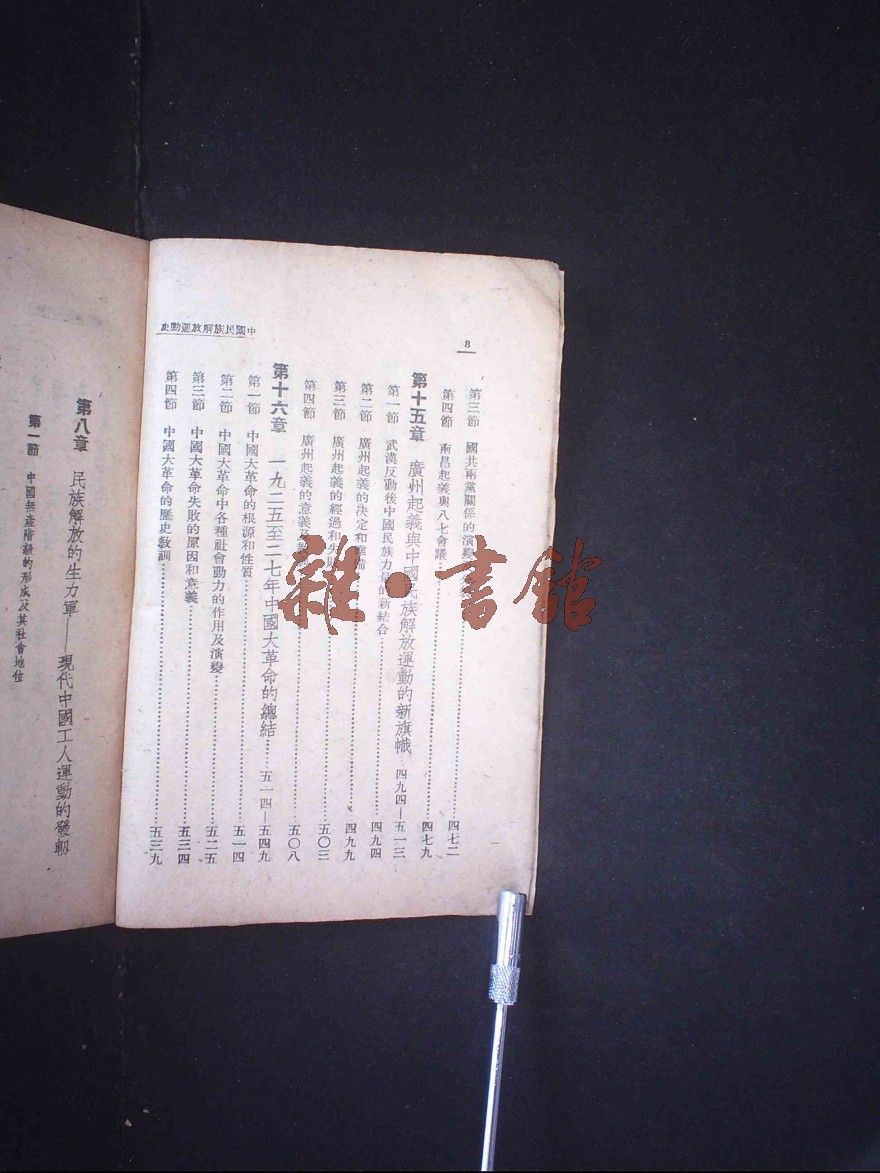 8
中國民族解放運動史
第三節 國共兩黨關係的演變……四七二
第四節 南昌起義與八七會議……四七九
第十五章 廣州起義與中國民族解放運動的新旗幟……四九四—五一三
第一節 武漢反動後中國民族力量的新結合……四九四
第二節 廣州起義的決定和準備……四九九
第三節 廣州起義的經過和失敗……五〇三
第四節 廣州起義的意義及……五〇八
第十六章 一九二五至二七年中國大革命的總結……五一四—五四九
第一節 中國大革命的根源和性質……五一四
第二節 中國大革命中各種社會動力的作用及演變……五二五
第三節 中國大革命失敗的原因和意義……五三四
第四節 中國大革命的歷史教訓……五三九
第八章 民族解放的生力軍——現代中國工人運動的發軔
第一節 中國無產階級的形成及其社會地位
雜·書館